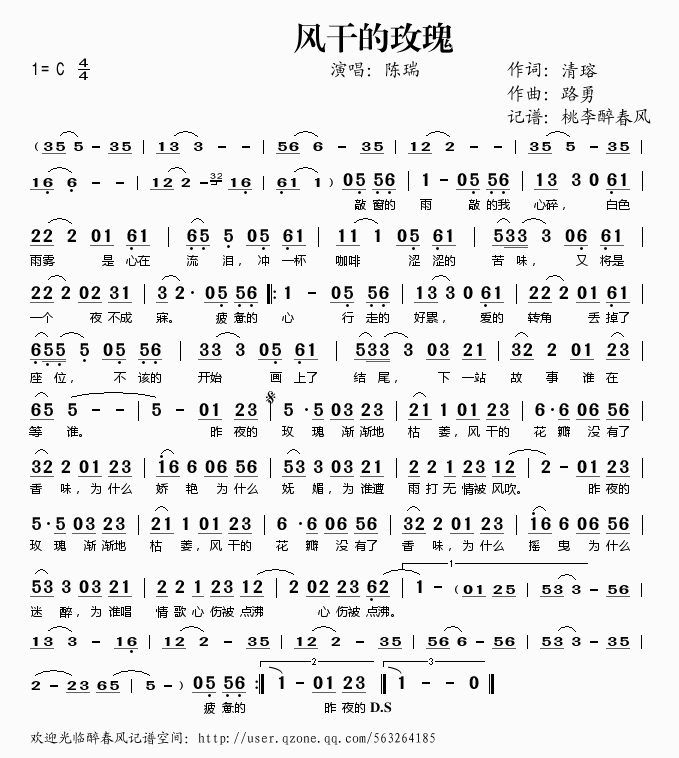 风干的玫瑰
1= C 4/4
演唱：陈瑞
作词：清瑢
作曲：路勇
记谱：桃李醉春风
（35 5 - 35 | 13 3 - - | 56 6 - 35 | 12 2 - - | 35 5 - 35 |
16 6 - - | 12 2 - 32 16 | 61 1 ）05 56 | 1 - 05 56 | 13 3 0 61 |
敲窗的 雨 敲的我 心碎， 白色
22 2 01 61 | 65 5 05 61 | 11 1 05 61 | 533 3 06 61 |
雨雾 是 心在 流 泪，冲 一杯 咖啡 涩 涩的 苦 味， 又 将是
22 2 02 31 | 3 2· 05 56 ‖: 1 - 05 56 | 13 3 0 61 | 22 2 01 61 |
一个 夜 不成 寐。 疲 惫的 心 行 走的 好累， 爱的 转角 丢 掉了
655 5 05 56 | 33 3 05 61 | 533 3 03 21 | 32 2 01 23 |
座 位， 不 该的 开始 画 上了 结 尾， 下 一站 故 事 谁 在
65 5 - - | 5 - 01 23 | 5 ·5 03 23 | 21 1 01 23 | 6·6 06 56 |
等 谁。 昨 夜的 玫 瑰 渐 渐地 枯 萎，风 干的 花 瓣 没 有了
32 2 01 23 | 16 6 06 56 | 53 3 03 21 | 2 2 1 23 12 | 2 - 01 23 |
香 味，为 什么 娇 艳 为 什么 妩 媚，为 谁遭 雨 打 无 情被 风吹。 昨 夜的
5·5 03 23 | 21 1 01 23 | 6 ·6 06 56 | 32 2 01 23 | 16 6 06 56 |
玫 瑰 渐 渐地 枯 萎，风 干的 花 瓣 没 有了 香 味，为 什么 摇 曳 为 什么
53 3 03 21 | 2 2 1 23 12 | 2 02 23 62 | 1 - （01 25 | 53 3 - 56 |
1
迷 醉，为 谁唱 情 歌 心 伤被 点沸 心 伤被 点沸。
13 3 - 16 | 12 2 - 35 | 12 2 - 35 | 56 6 - 56 | 53 3 - 35 |
2 - 23 65 | 5 - ）05 56 :‖ 1 - 01 23 ‖ 1 - - 0 ‖
2 3
疲 惫的 昨 夜的 D.S
欢迎光临醉春风记谱空间：http://user.qzone.qq.com/563264185